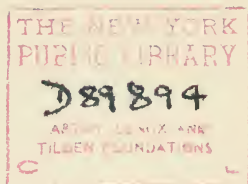 THE NEW YORK
PUBLIC LIBRARY
D89894
ASTOR, LENOX AND
TILDEN FOUNDATIONS
C L